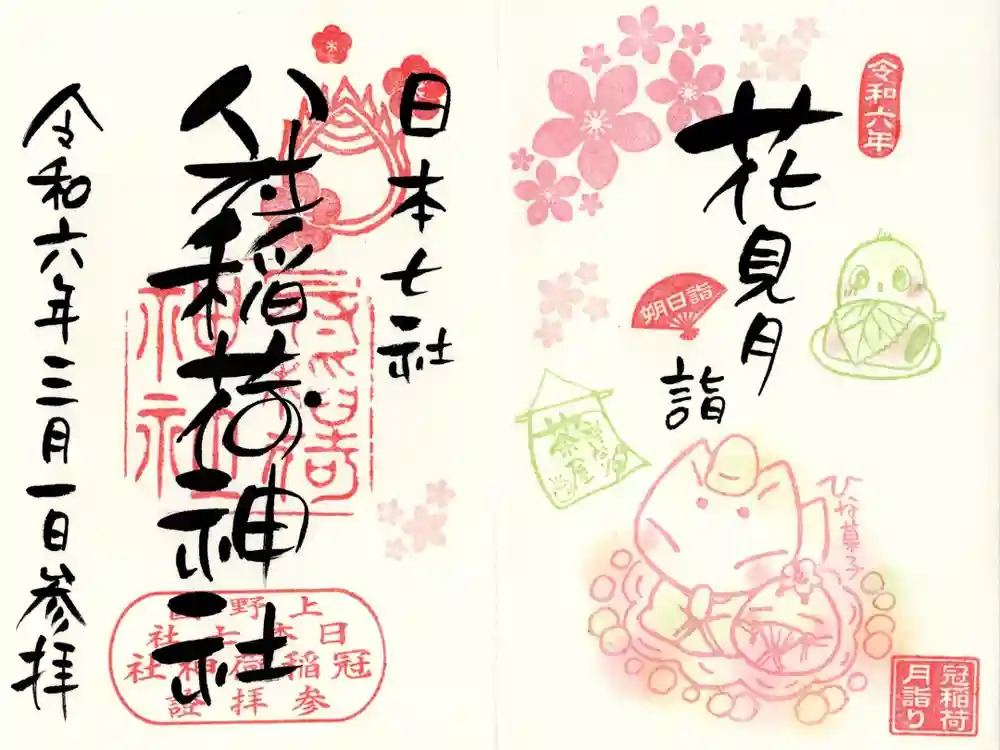 令和六年
花見月
詣
朔日詣
茶屋
ひな菓子
冠稲荷
月詣り
日本七社
冠稲荷神社
令和六年三月一日参拝
冠稲荷
神社
上野國
日本七社
冠稲荷神社
参拝証